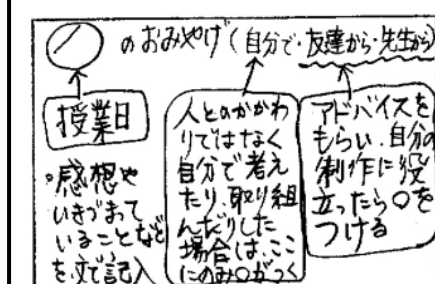 ／のおみやげ(自分で・友達から・先生から)
授業日
・感想や
いきづまって
いることなど
を文で記入
人とのかかわ
りではなく
自分で考え
たり、取り組
んだりした
場合は、ここ
にのみ○がつく
アドバイスを
もらい、自分の
制作に役
立ったら○を
つける